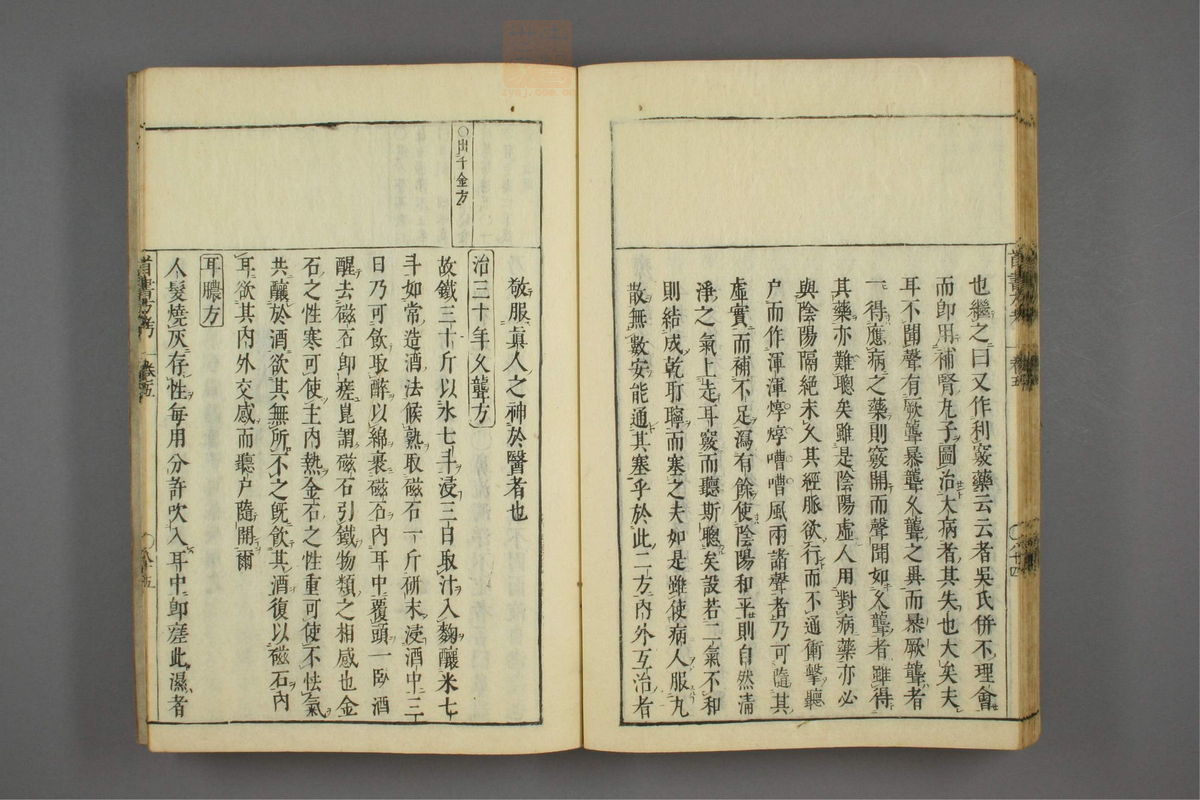 也繼之曰又作利竅藥云云者吳氏併不理會
而卽用補腎丸子圖治大病者其失也大矣夫
耳不聞聲有厥聾暴聾久聾之異而暴厥聾者
一得應病之藥則竅開而聲聞如久聾者雖得
其藥亦難聰矣雖是陰陽虛人用對病藥亦必
與陰陽隔絕未久其經脈欲行而不通衝擊聽
户而作渾渾焞焞嘈嘈風雨諸聲者乃可隨其
虛實而補不足瀉有餘使陰陽和平則自然清
淨之氣上走耳竅而聽斯聰矣設若二氣不和
則結成乾耵聹而塞之夫如是雖使病人服丸
散無數安能通其塞乎於此二方內外互治者
首書方考 卷五 八十四
○出千金方
敬服眞人之神於醫者也
治三十年久聾方
故鐵三十斤以水七斗浸三日取汁入麴釀米七
斗如常造酒法候熟取磁石一斤研末浸酒中三
日乃可飲取醉以綿裹磁石內耳中覆頭一臥酒
醒去磁石卽瘥崑謂磁石引鐵物類之相感也金
石之性寒可使主內熱金石之性重可使不怯氣
共釀於酒欲其無所不之旣飲其酒復以磁石內
耳欲其內外交感而聽户隨開爾
耳膿方
人髮燒灰存性每用分許吹入耳中卽瘥此濕者
首書方考 卷五 八十五